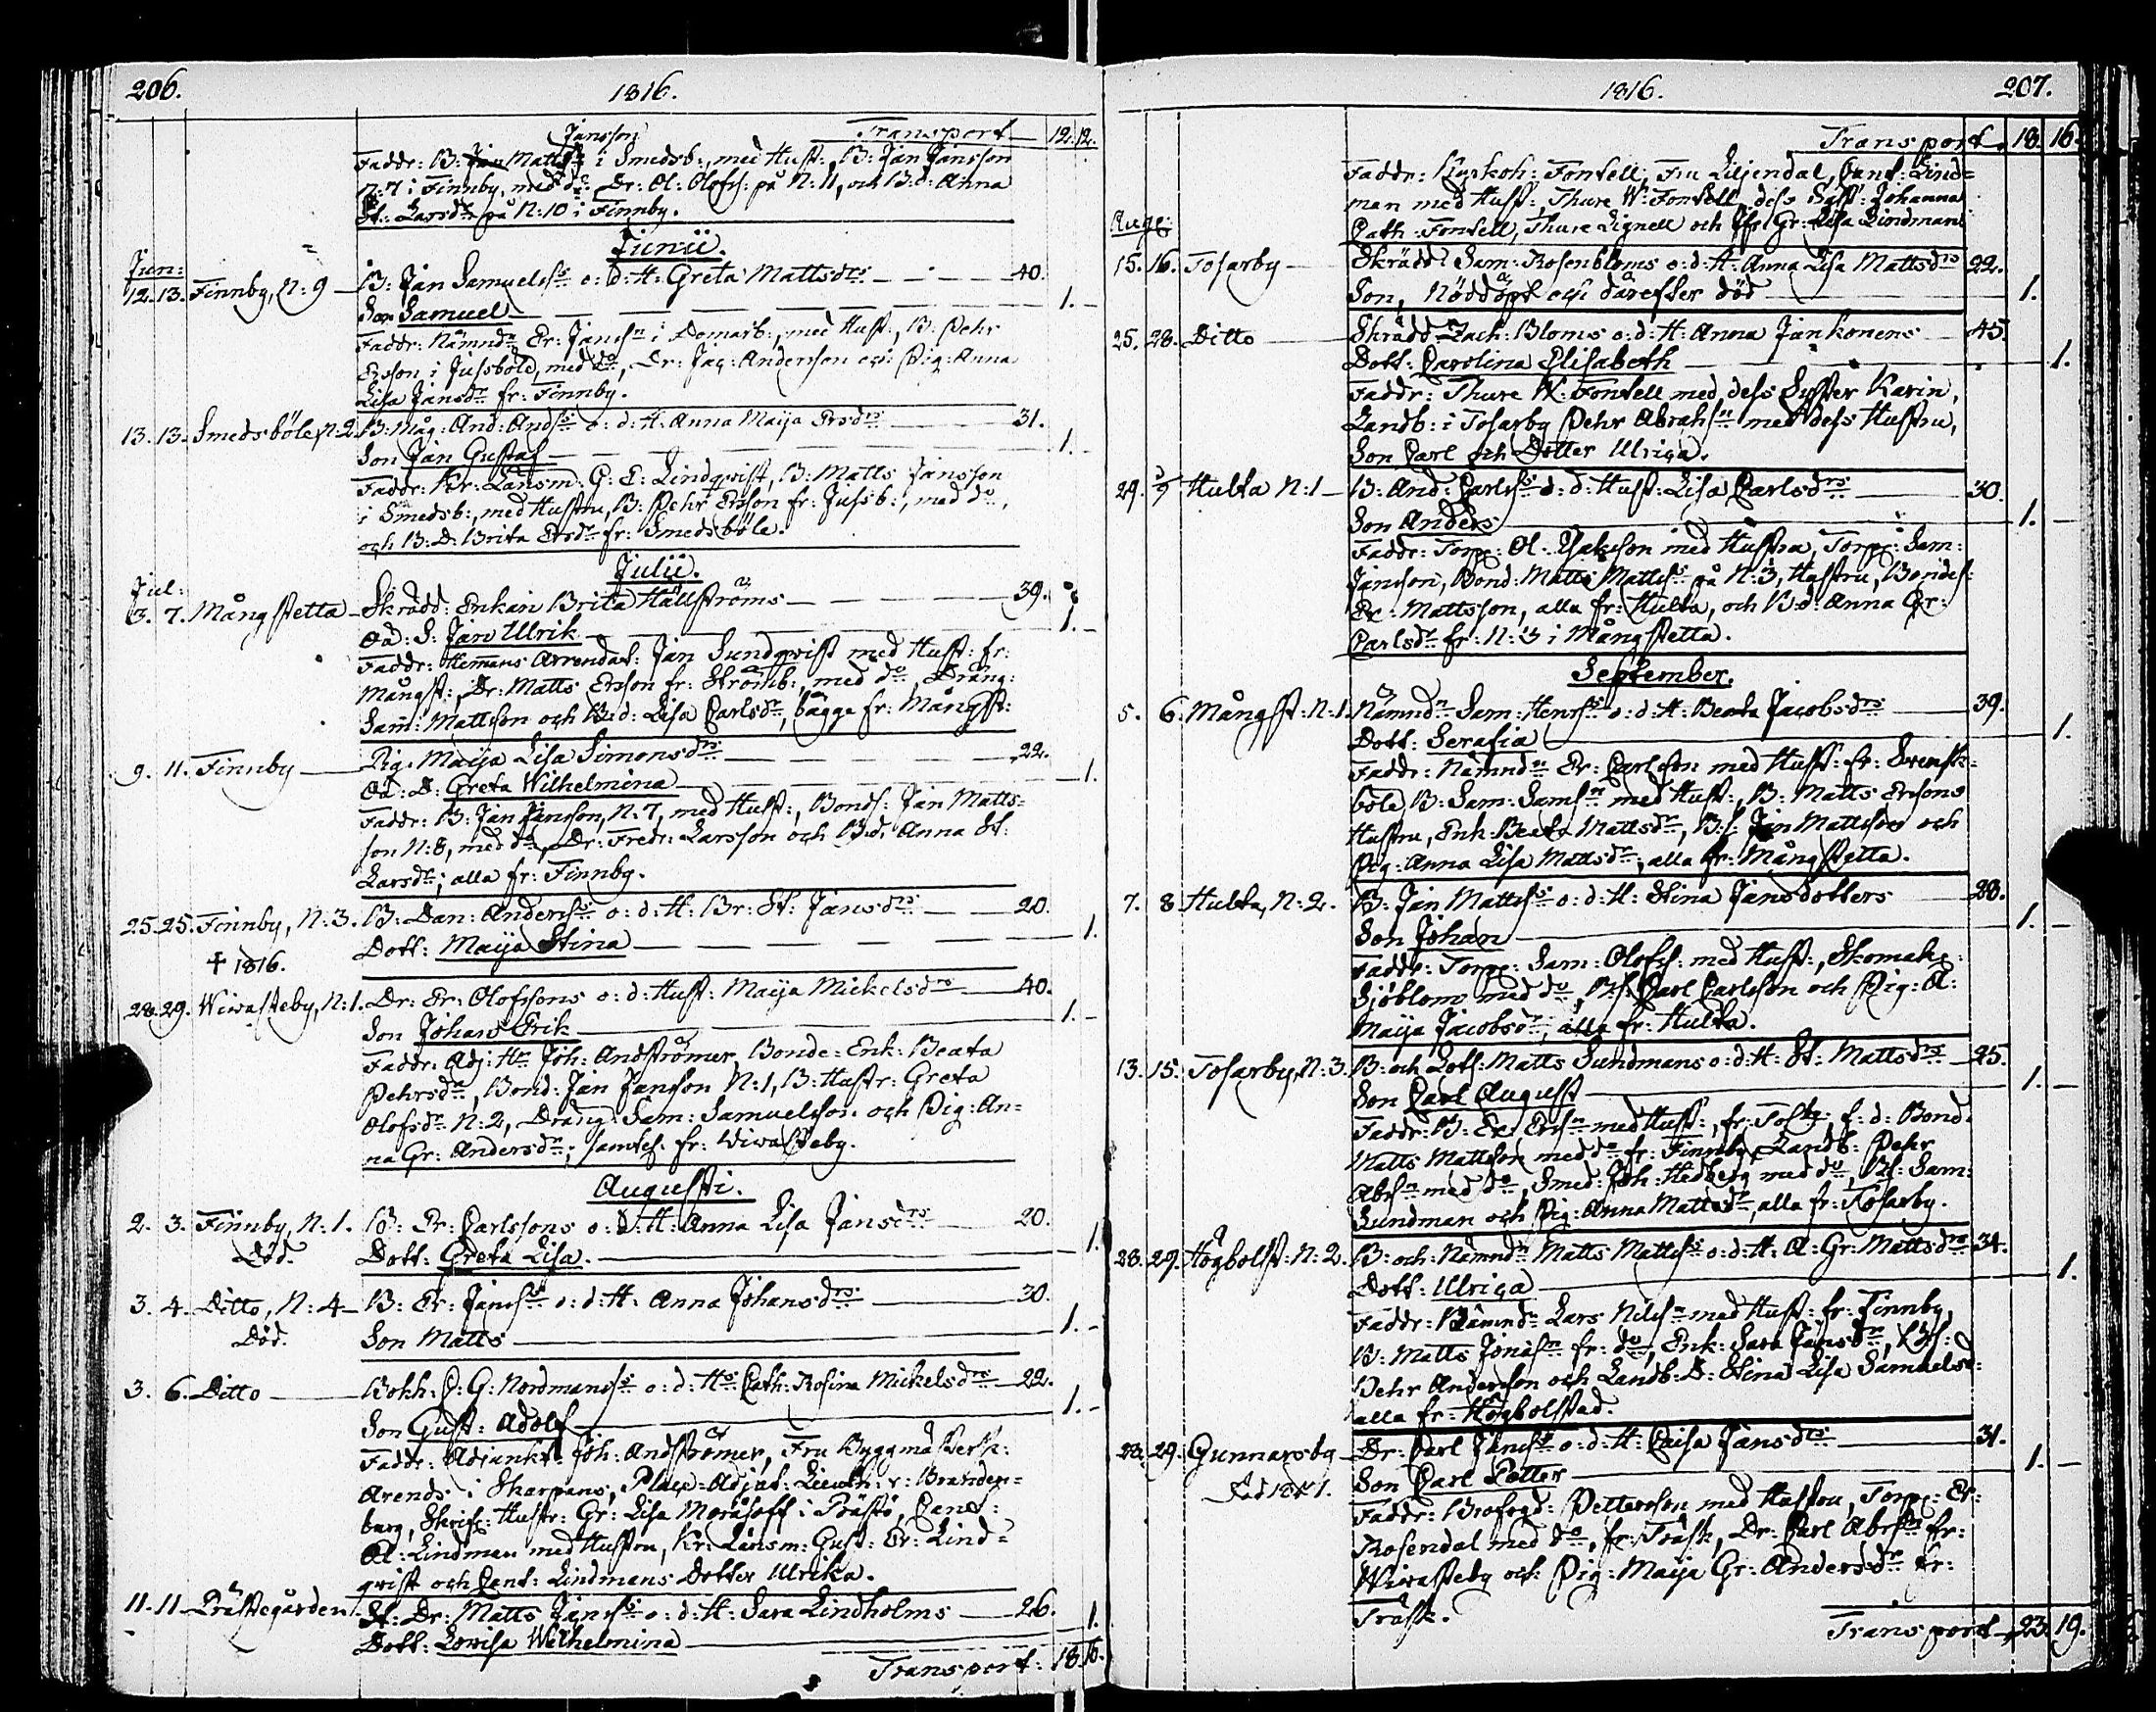 206.
1816.
Jansson
Transport 12. 12.
Faddr: B: Jan Matts i Smedsb:, med Hust:, B: Jan Jansson
N:7 i Finnby, med do: Dr: Ol: Olofss: på N:11, och B:d: Anna
St: Larsdr på N:10 i Finnby.
Junii.
Jun:
12. 13. Finnby, N:9 B: Jan Samuelss o: d: H: Greta Mattsdrs 40.
Son Samuel 1.
Faddr: Nämndn Er: Janssn i Domarb:, med Hust:, B: Pehr
Ersson i Jussböle, med do, Dr: Jac: Andersson och Pig: Anna
Lisa Jansdr fr: Finnby.
13. 13. Smedsböle, N:2 B: Måg: And: Andss o: d: H: Anna Maija Ersdrs 31.
Son Jan Gustaf 1.
Faddr: Kr: Länsm: G: E: Lindqvist, B: Matts Jansson
i Smedsb:, med Hustru, B: Pehr Ersson fr: Jussb:, med do,
och B: D: Brita Ersdr fr: Smedsböle.
Julii.
Jul:
3. 7. Mångstetta Skrädd: Enkan Brita Hällströms 39.
Oä: S: Jan Ulrik 1.
Faddr: Hemmans Arrendat: Jan Sundqvist med Hust: fr:
Mångst:, Dr: Matts Ersson fr: Strömb:, med do, Dräng:
Sam: Mattsson och B:d: Lisa Carlsdr, bägge fr: Mångst:
9. 11. Finnby Pig: Maija Lisa Simonsdrs 22.
Oä: D: Greta Wilhelmina 1.
Faddr: B: Jan Jansson, N:7, med Hust:, Bonds: Jan Matts-
son N:8, med do, Dr: Fredr: Larsson och B:d: Anna St:
Larsdr; alla fr: Finnby.
25. 25. Finnby, N:3. B: Dan: Anderss o: d: H: Br: St: Jansdrs 20.
Dott: Maija Stina 1.
† 1816.
28. 29. Wiwasteby, N:1. Dr: Er: Olofssons o: d: Hust: Maija Mickelsdrs 40.
Son Johan Erik 1.
Faddr: Adj: Hr Joh: Andströmer, Bonde: Enk: Beata
Pehrsdr, Bond: Jan Jansson N:1, B: Hustr: Greta
Olofsdr N:2, Dräng: Sam: Samuelsson och Pig: An-
na Gr: Andersdr; samtl: fr: Wiwasteby.
Augusti.
2. 3. Finnby, N:1. B: Er: Carlssons o: d: H: Anna Lisa Jansdrs 20.
Död. Dott: Greta Lisa. 1.
3. 4. Ditto, N:4 B: Er: Janss o: d: H: Anna Johansdrs 30.
Död. Son Matts 1.
3. 6. Ditto Bokh: C: G: Nordmanss o: d: Hs Cath: Rosina Mickelsdrs 22.
Son Gust: Adolf 1.
Faddr: Adjunkt: Joh: Andströmer, Fru Byggmästersk:
Arends i Skarpans, Place-Adjut: Lieutn: v: Branden-
burg, Skrifv: Hustr: Gr: Lisa Moråsoff i Prästö, Cant:
Ol: Lindman med Hustru, Kr: Länsm: Gust: Er: Lind-
qvist och Cant: Lindmans Dotter Ulrika.
11. 11. Prästegården St: Dr: Matts Janss o: d: H: Sara Lindholms 26.
Dott: Lovisa Wilhelmina 1.
Transport: 18. 16.
1816.
207.
Transport. 18. 16.
Faddr: Kyrkoh: Fontell, Fru Liljendal, Cant: Lind-
man med Hust: Thure W: Fontell, dess Syst: Johanna
Cath: Fontell, Thure Lignell och Jfr Gr: Lisa Lindman
Aug:
15. 16. Tosarby Skrädd: Sam: Rosenbloms o: d: H: Anna Lisa Mattsdrs 22.
Son, Nöddöpt och därefter död 1.
25. 28. Ditto Skrädd: Zach: Bloms o: d: H: Anna Jankonens 45.
Dott: Carolina Elisabeth 1.
Faddr: Thure W: Fontell med dess Syster Karin,
Landb: i Tosarby Pehr Abrahsn med dess Hustru,
Son Carl och Dotter Ulrica.
29. 1/9 Hulta N:1 B: And: Carlss o: d: Hust: Lisa Carlsdrs 30.
Son Anders 1.
Faddr: Torp: Ol: Isaksson med Hustru, Torp: Sam:
Jansson, Bond: Matts Mattss på N:3, Hustru, Bondes:
Er: Mattsson, alla fr: Hulta, och B:d: Anna Gr:
Carlsdr fr: N:3 i Mångstetta.
September.
5. 6. Mångst: N:1. Nämndn Sam: Henrss o: d: H: Beata Jacobsdrs 39.
Dott: Serafia 1.
Faddr: Nämndn Er: Carlsson med Hust: fr: Svensk-
böle, B: Sam: Samsn med Hust:, B: Matts Erssons
Hustru, Enk: Beata Mattsdr, B:s: Jan Mattsson och
Pig: Anna Lisa Mattsdr, alla fr: Mångstetta.
7. 8. Hulta, N:2. B: Jan Mattss o: d: H: Stina Jansdotters 28.
Son Johan 1.
Faddr: Torp: Sam: Olofss: med Hust:, Skomak:
Sjöblom med do, B:s: Carl Carlsson och Pig: A:
Maija Jacobsdr, alla fr: Hulta.
13. 15. Tosarby, N:3. B: och Lots: Matts Sundmans o: d: H: St: Mattsdrs 25.
Son Carl August 1.
Faddr: B: Er: Erssn med Hust:, fr: Tosby, f: d: Bond:
Matts Mattsson med do fr: Finnby, Landb: Pehr
Abrsn med do, Smed: Joh: Hedberg med do, B:s: Sam:
Sundman och Pig: Anna Mattsdr, alla fr: Tosarby.
28. 29. Högbolst: N:2. B: och Nämndn Matts Mattss o: d: H: A: Gr: Mattsdrs 34.
Dott: Ulrica 1.
Faddr: Nämndn Lars Nilssn med Hust: fr: Finnby,
B: Matts Jonassn fr: do, Enk: Sara Jansdr, B:s:
Pehr Andersson och Landb: D: Stina Lisa Samuelsd:
alla fr: Högbolstad.
23. 29. Gunnarsby Dr: Carl Janss o: d: H: Caisa Jansdrs 31.
Son Carl Petter 1.
Faddr: Brofogd: Pettersson med Hustru, Torp: Er:
Rosendal med do, fr: Träsk, Dr: Carl Abrssn fr:
Wiwasteby och Pig: Maija Gr: Andersdr fr:
Träsk.
Transport 23. 19.